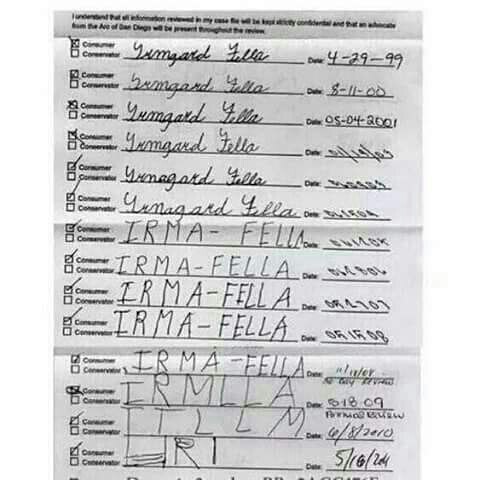 I understand that all information reviewed in my case file will be kept strictly confidential and that an advocate
from the Arc of San Diego will be present throughout the review.
Consumer
Conservator Yrmgard Fella Date: 4-29-99
Consumer
Conservator Yrmgard Fella Date: 8-11-00
Consumer
Conservator Yrmgard Fella Date: 05-04-2001
Consumer
Conservator Yrmgard Fella Date:
Consumer
Conservator Yrmagard Fella Date:
Consumer
Conservator Yrmagard Fella Date:
Consumer
Conservator IRMA- FELLA Date:
Consumer
Conservator IRMA-FELLA Date:
Consumer
Conservator IRMA-FELLA Date: 05.17.07
Consumer
Conservator IRMA-FELLA Date: 05.15.08
Consumer
Conservator IRMA-FELLA Date: 11/18/08
30 Day Review
Consumer
Conservator IRMLLA Date: 5-18-09
Annual Review
Consumer
Conservator ITLLM Date: 6/8/2010
Consumer
Conservator IRI Date: 5/16/2011